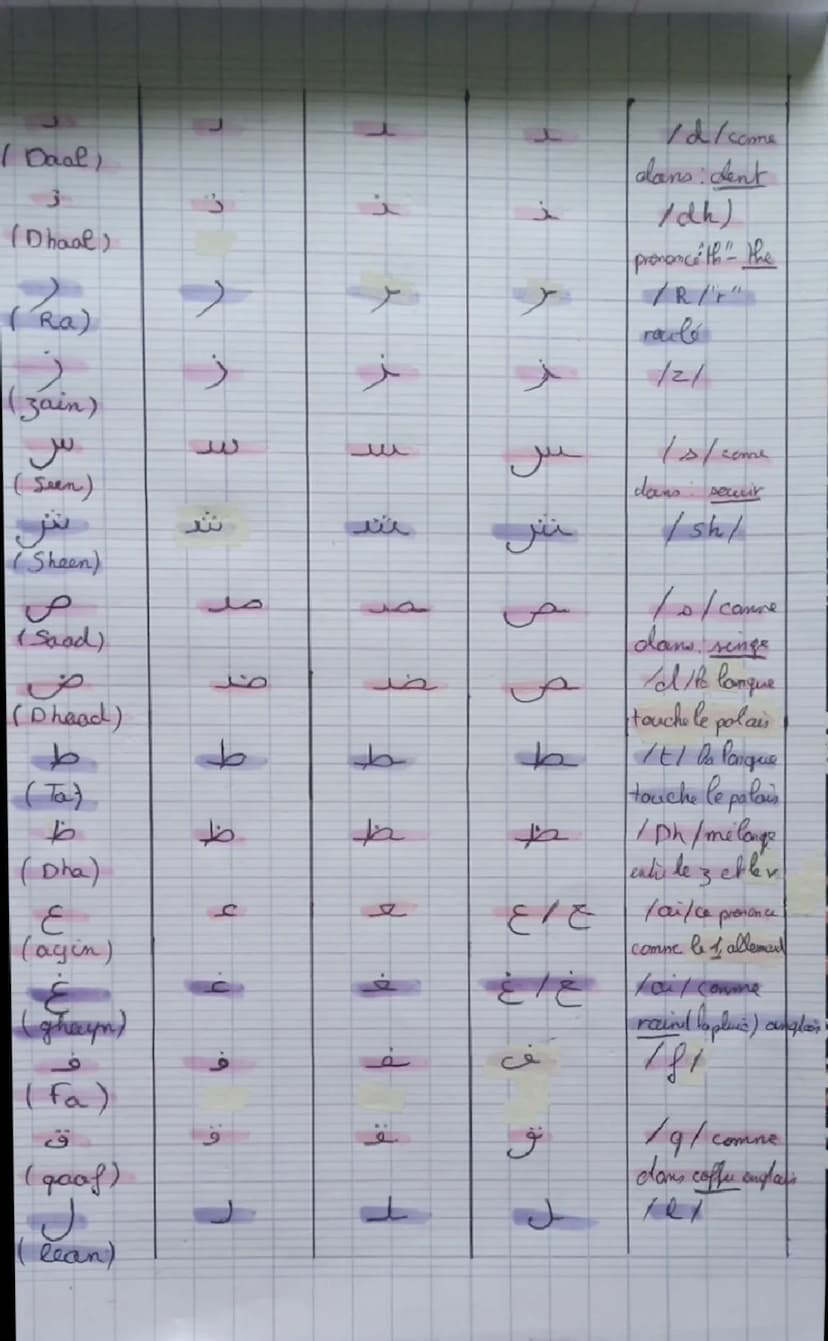 د د ـد ـد /d/come
(Daal) dans: dent
ذ ذ ـذ ـذ /dh)
(Dhaal) prononcé"th"- the
ر ر ـر ـر /R/"r"
(Ra) roulé
ز ز ـز ـز /z/
(zain)
س سـ ـسـ ـس /s/come
(Seen) dans:
ش شـ ـشـ ـش /sh/
(Sheen)
ص صـ ـصـ ـص /s/comme
(Saad) dans: singe
ض ضـ ـضـ ـص /d/la langue
(Dhaad) touche le palais
ط ط ـط ـط /t/ la langue
(Ta) touche le palais
ظ ظ ـظ ـظ /Dh/mélange
(Dha) le z et le v
ع عـ ـعـ ع / ـع /ai/ce prononce
(ayin) comme le allemand
غ غـ ـغـ غ / ـغ /ai/comme
(ghayn) rain(la pluie) anglais
ف فـ ـفـ ـف /f/
(Fa)
ق قـ ـقـ ـق /q/comme
(qaaf) dans anglais
ل لـ ـلـ ـل /l/
(lean)